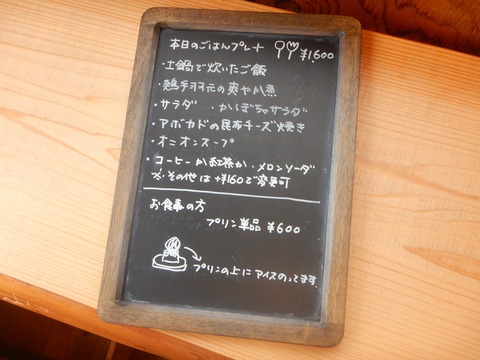 本日のごはんプレート ¥1,600
・土鍋で炊いたご飯
・鶏手羽元の爽やか煮
・サラダ ・かぼちゃサラダ
・アボカドの昆布チーズ焼き
・オニオンスープ
・コーヒーか紅茶か・メロンソーダ
※・その他は+¥160で変更可
お食事の方
プリン単品 ¥600
プリンの上にアイスのってます